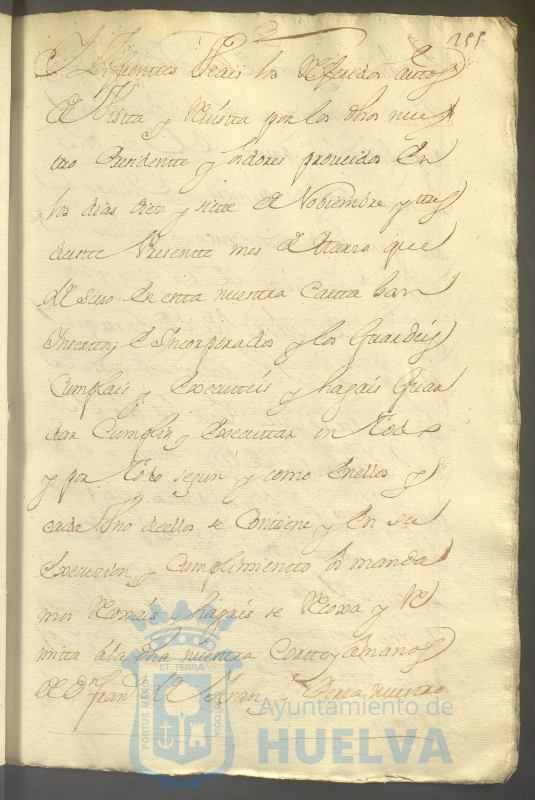 255
Veais los Referidos autos
de Vista y Revista por los dhos nues
tro Presidente y oidores proueidos En
los dias diez y siete de Nobiembre y tres
deeste Presente mes de Henero que
de Suso En esta nuestra Carta ban
Insertos, e Incorporados y los Guardeis
Cumplais y Executeis y hagais Guar
dar Cumplir y Executtar en Todo
y por Todo segun y como Enellos y
cada Uno deellos se Contiene y En su
Execuzion y Cumplimiento os manda
mos y hagais se y Re
mita ala dha nuestra Corte y amanos
de Dn Fran.co de Perea nuestro
PORTUS MARIS
ET TERRÆ
CUSTODIA
Ayuntamiento de
HUELVA